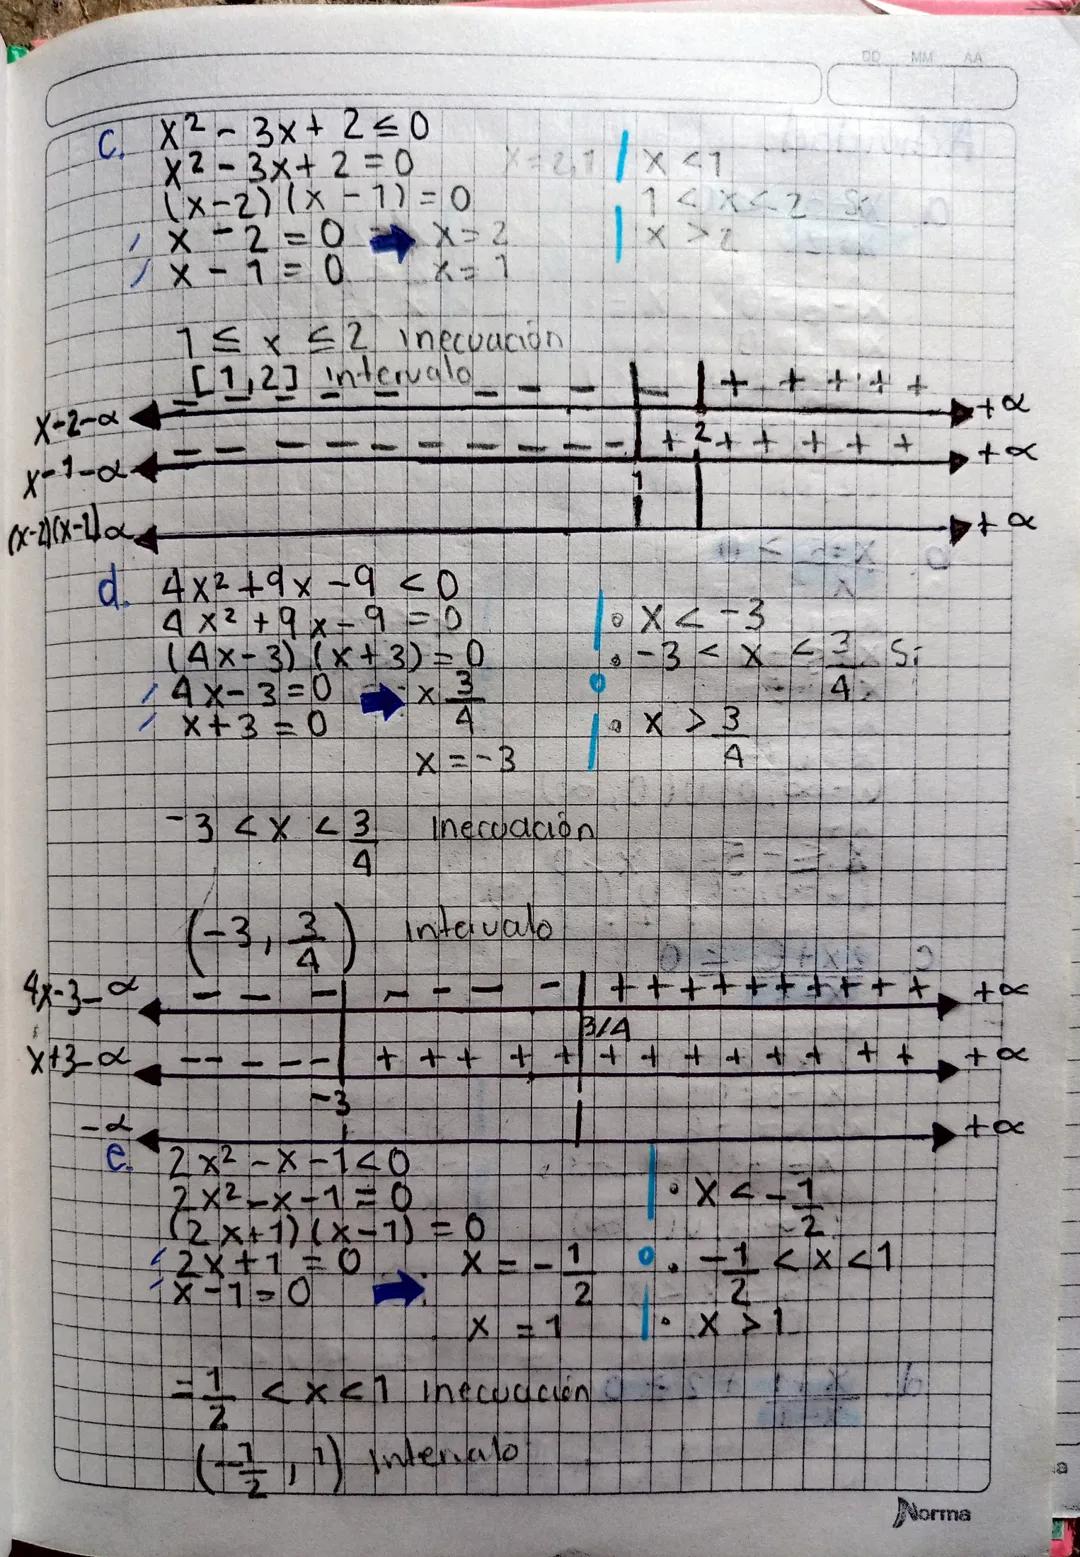 DD MM AA
c. x² - 3x + 2 ≤ 0
x² - 3x + 2 = 0 x = 2, 1 x < 1
(x-2)(x - 1) = 0 1 < x < 2 Si
x - 2 = 0 x = 2 x > 2
x - 1 = 0 x = 1
1 ≤ x ≤ 2 inecuación
[1,2] intervalo
x-2 -α - - - - - - - - - + + + + + +α
x-1 -α - - - - - - - - - - + 2 + + + + + +α
1
(x-2)(x-1) α +α
d. 4x² + 9x - 9 < 0
4x² + 9x - 9 = 0 • x < -3
(4x-3)(x+3) = 0 • -3 < x < 3/4 Si
4x - 3 = 0 x 3/4
x + 3 = 0 • x > 3/4
x = -3
-3 < x < 3/4 inecuación
(-3, 3/4) intervalo
4x-3 -α - - - - - - - + + + + + + + + + + +α
3/4
x+3 -α - - - - - + + + + + + + + + + + + + +α
-3
-α +α
e. 2x² - x - 1 < 0
2x² - x - 1 = 0 • x < -1/2
(2x+1)(x-1) = 0
2x + 1 = 0 x = -1/2 • -1/2 < x < 1
x - 1 = 0
x = 1 • x > 1
= 1/2 < x < 1 inecuación
(-1/2, 1) intervalo
Norma